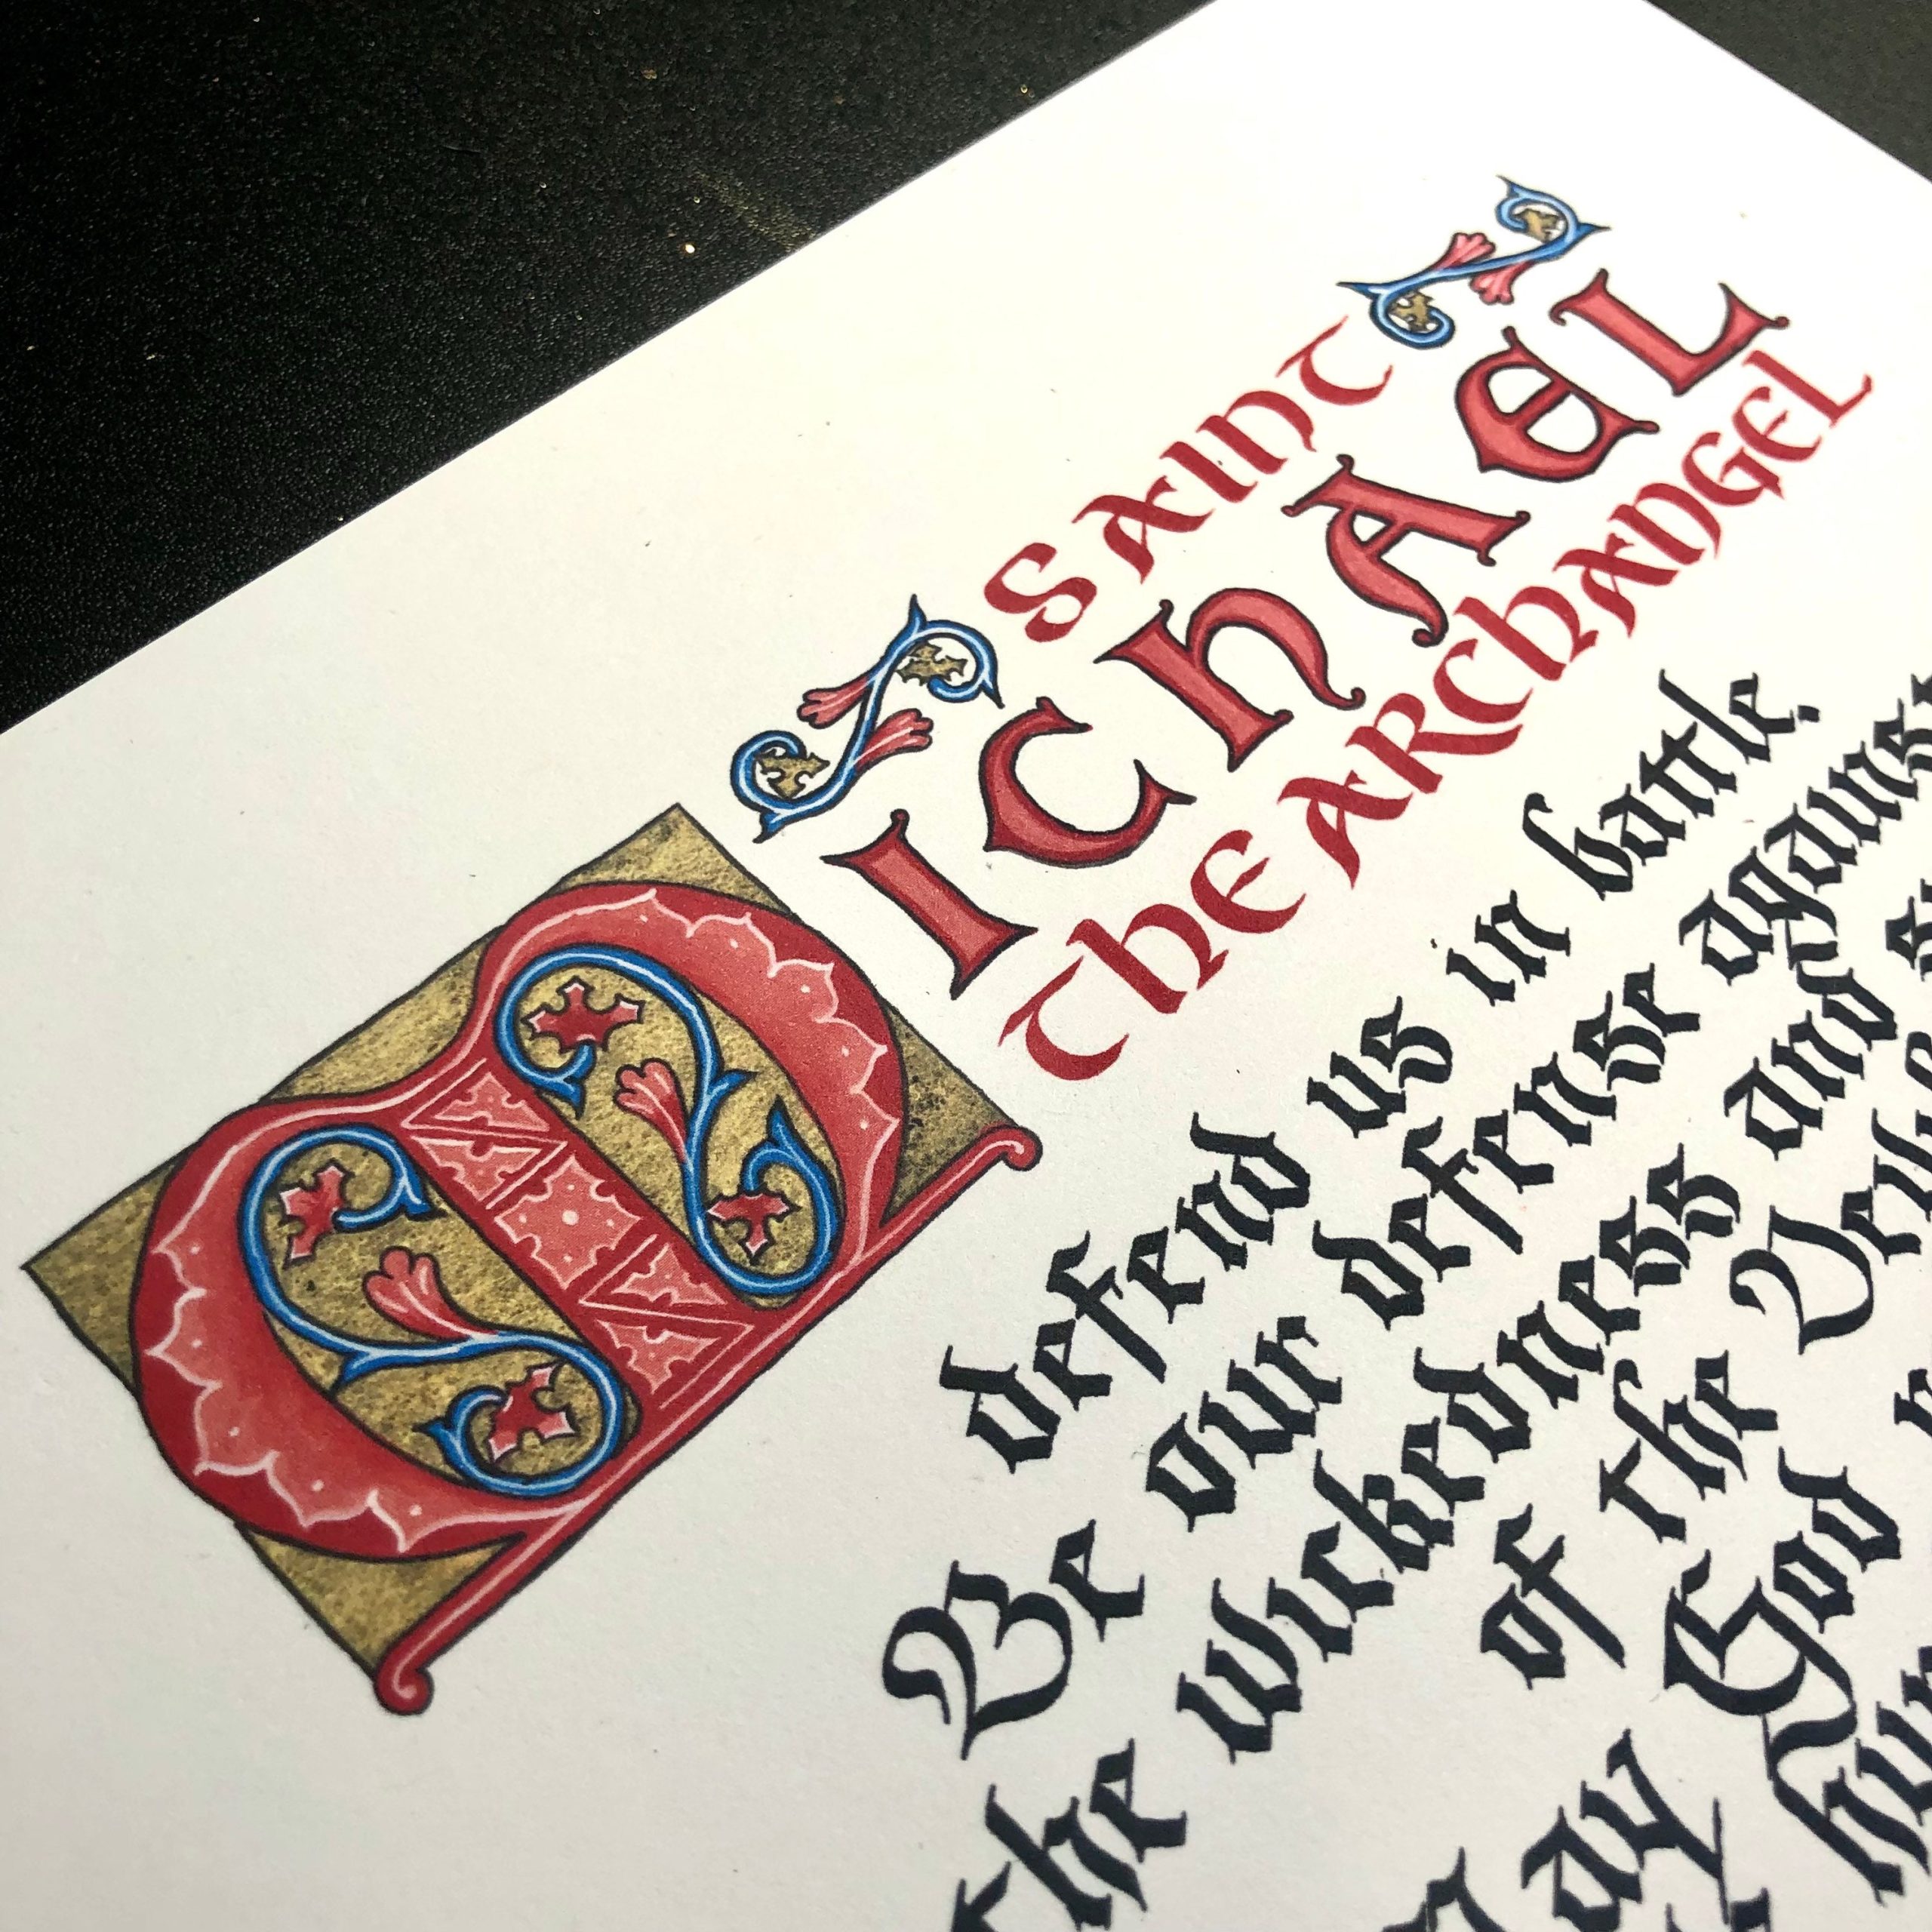 SAINT
MICHAEL
THE ARCHANGEL
defend us in battle.
Be our defense agains
the wickedness and
of the Devil
ay God